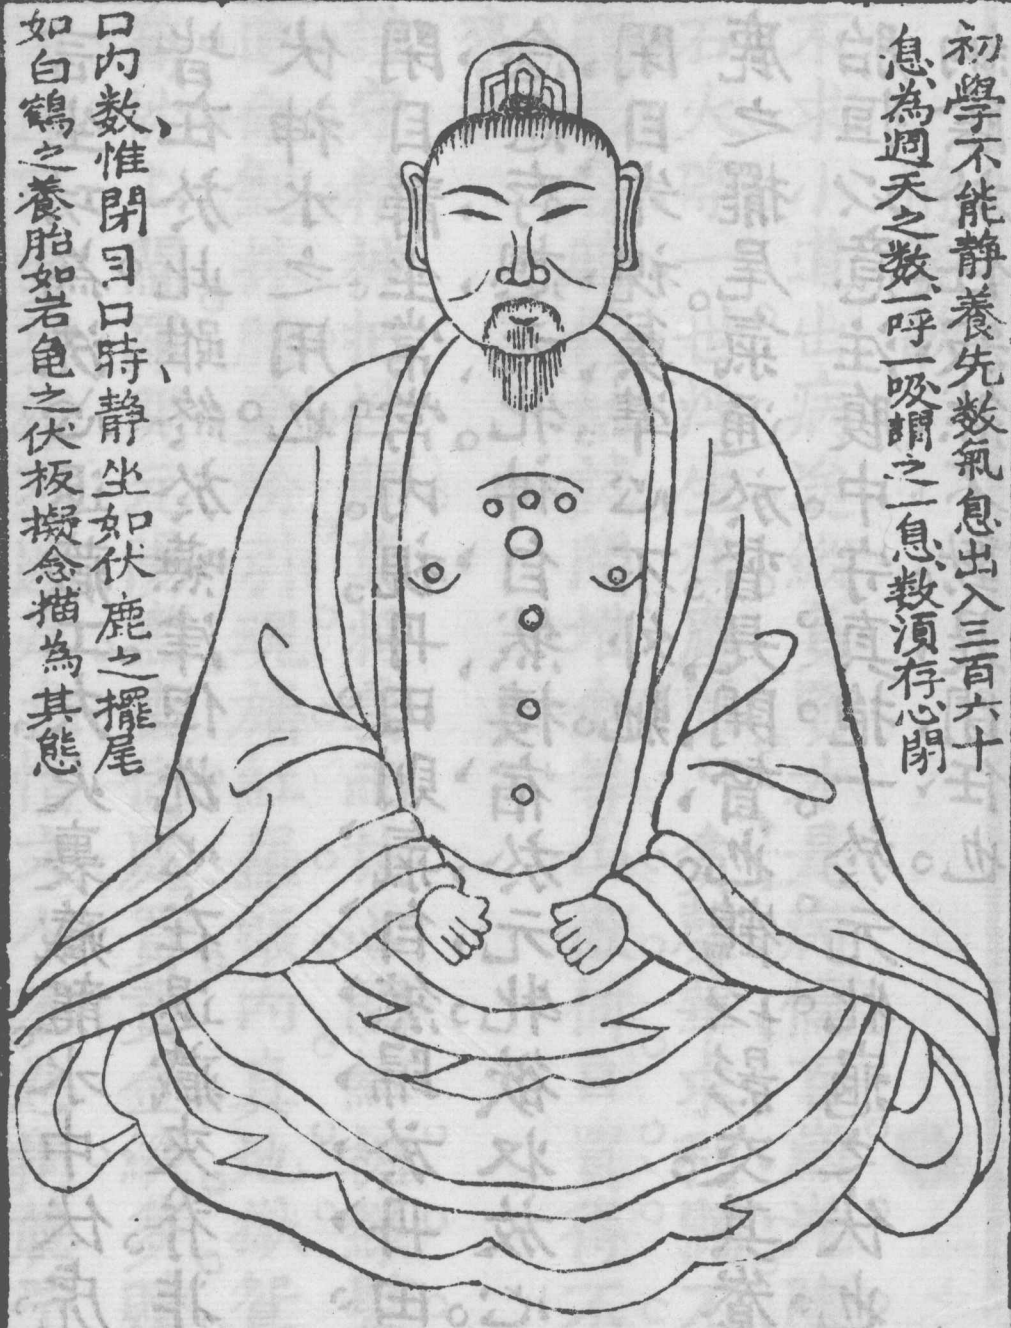 初學不能静養先数氣息出入三百六十
息為週天之数一呼一吸謂之一息数須存心閉
口内数惟閉目口時静坐如伏鹿之擺尾
如白鶴之養胎如岩龟之伏板擬念描為其態